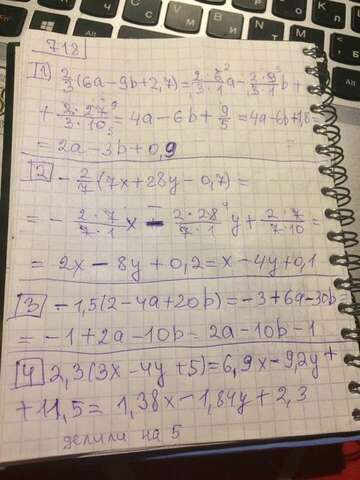 718
1) 2/3(6a-9b+2,7)=2·6²/3·1 a-2·9/3·1 b+
+ 2·27⁹/3·10₅ = 4a-6b+9/5=4a-6b+1,8=
= 2a-3b+0,9
2) -2/7(7x+28y-0,7)=
= -2·7/7·1 x - 2·28⁴/7·1 y+2·7/7·10=
= 2x-8y+0,2=x-4y+0,1
3) -1,5(2-4a+20b)=-3+6a-30b=
= -1+2a-10b=2a-10b-1
4) 2,3(3x-4y+5)=6,9x-9,2y+
+11,5= 1,38x-1,84y+2,3
делили на 5